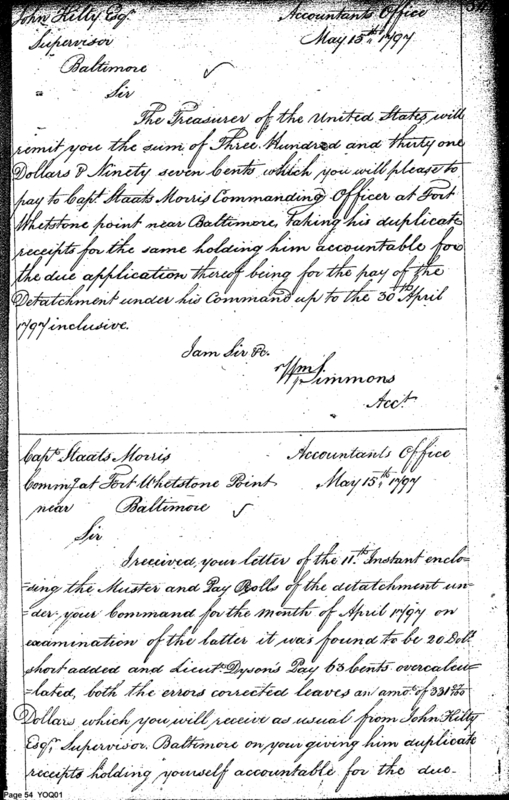 John Kilty Esqr. Accountants Office
Supervisor May 15th, 1797
Baltimore
Sir
The Treasurer of the United States, will
remit you the sum of Three Hundred and thirty one
Dollars & Ninety seven Cents which you will please to
pay to Capt. Staats Morris Commanding Officer at Fort
Whetstone point near Baltimore, taking his duplicate
receipts for the same holding him accountable for
the due application thereof being for the pay of the
Detatchment under his Command up to the 30th April
1797 inclusive.
I am Sir &c.
Wm. Simmons
Acct.
Capt. Staats Morris Accountants Office
Commg. at Fort Whetstone Point May 15th, 1797
near Baltimore
Sir
I received your letter of the 11th Instant enclo-
=sing the Muster and Pay Rolls of the detatchment un-
=der your Command for the month of April 1797 on
examination of the latter it was found to be 20 Dolls.
short added and Lieut. Dyson's Pay 63 Cents overcalcu-
=lated, both the errors corrected leaves an amo. of 331 97/100
Dollars which you will receive as usual from John Kilty
Esqr. Supervisor. Baltimore on your giving him duplicate
receipts holding yourself accountable for the due-
Page 54 YOQ01